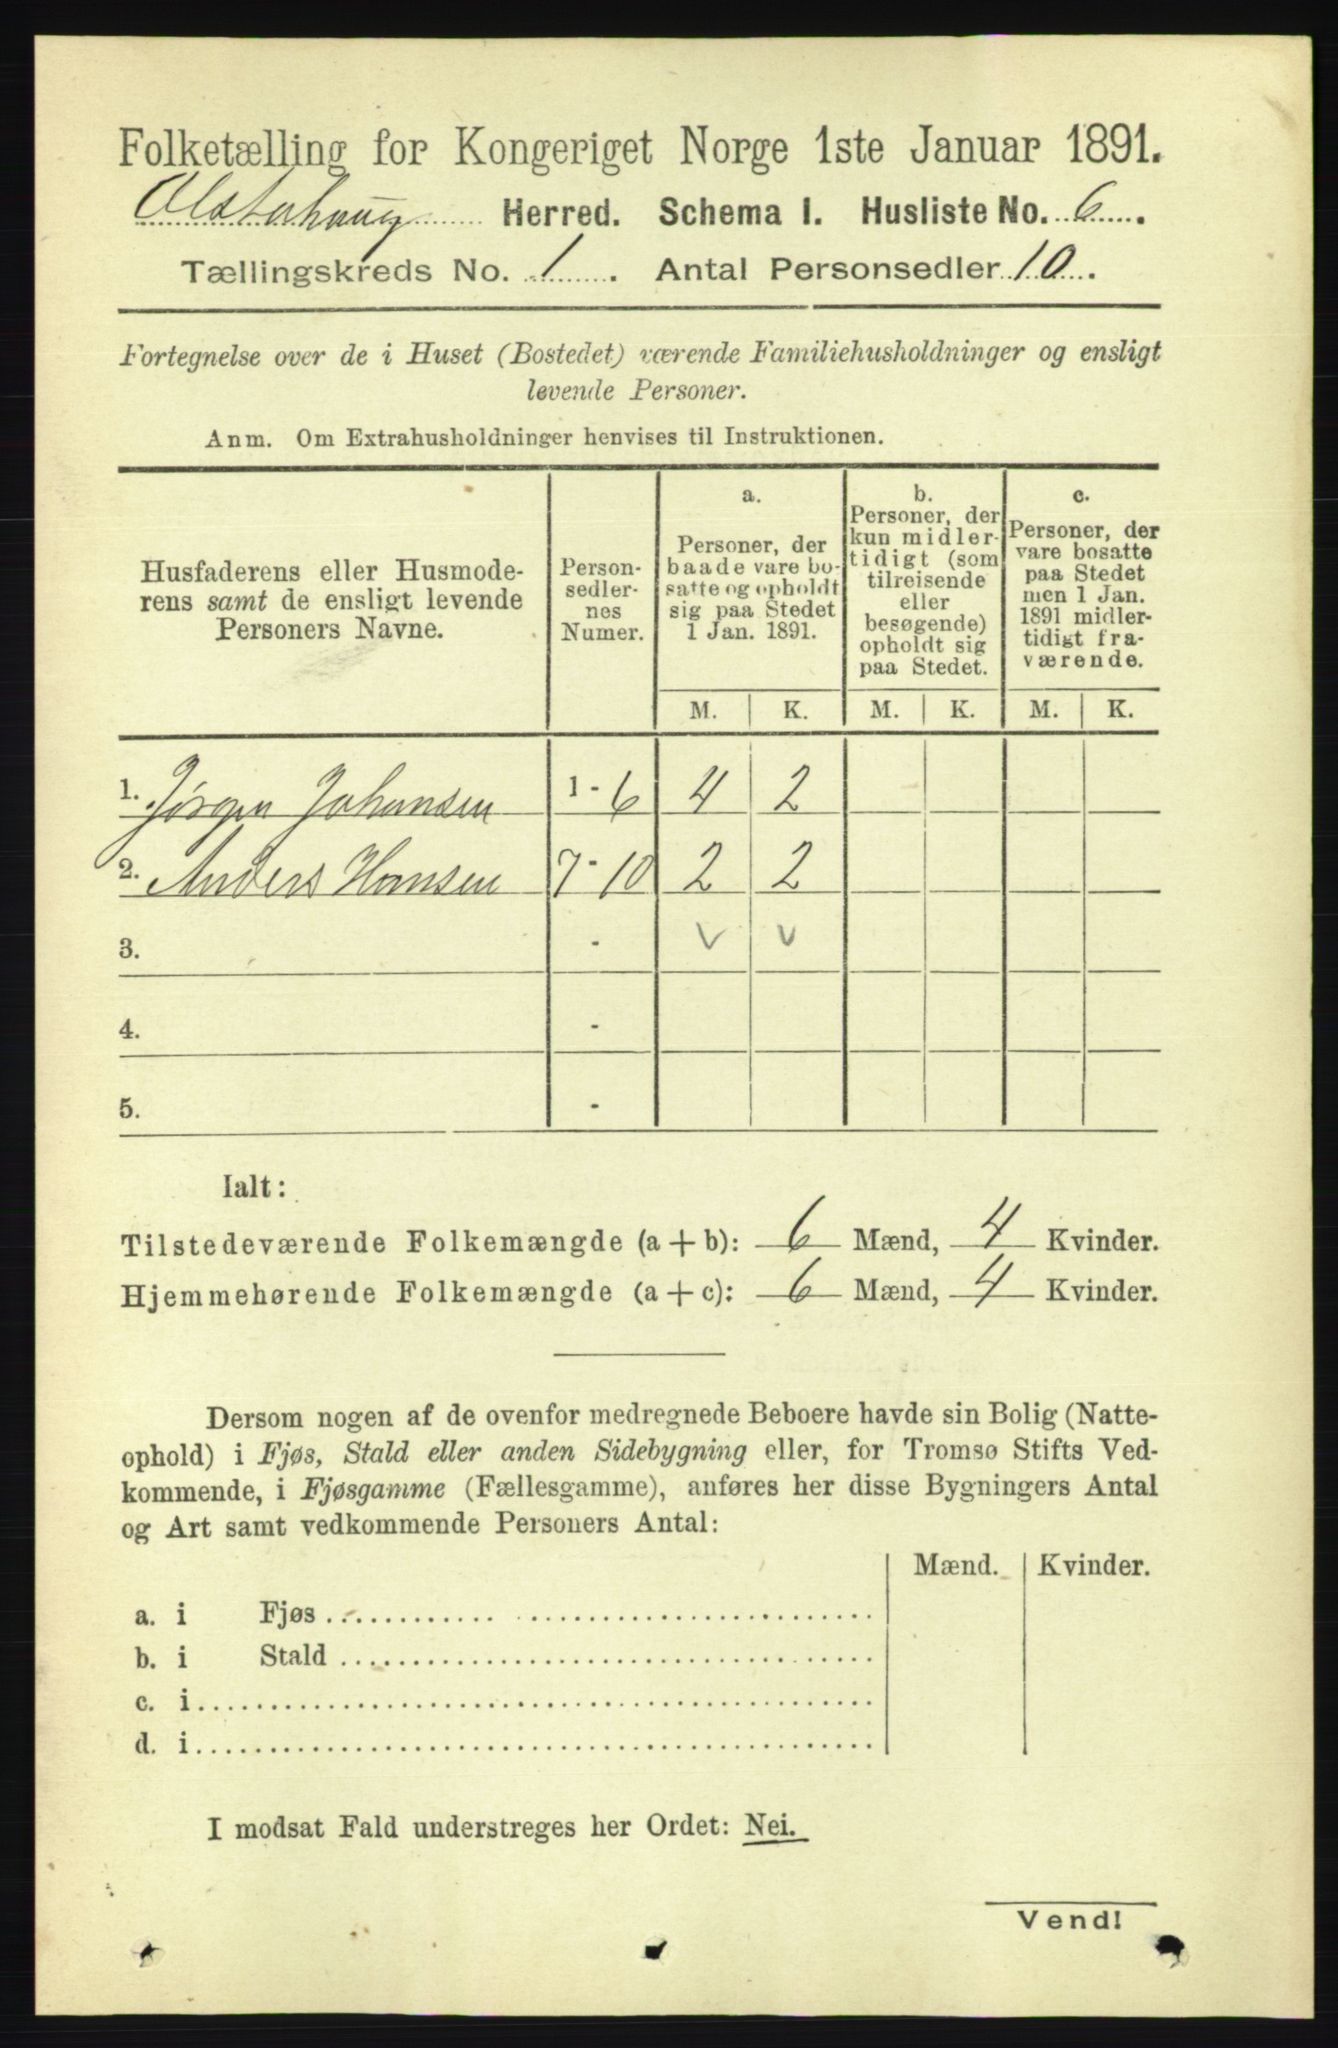 Folketælling for Kongeriget Norge 1ste Januar 1891.
Alstahaug Herred. Schema I. Husliste No. 6.
Tællingskreds No. 1. Antal Personsedler 10.
Fortegnelse over de i Huset (Bostedet) værende Familiehusholdninger og ensligt
levende Personer.
Anm. Om Extrahusholdninger henvises til Instruktionen.
Husfaderens eller Husmode-
rens samt de ensligt levende
Personers Navne.
Person-
sedler-
nes
Numer.
a.
Personer, der
baade vare bo-
satte og opholdt
sig paa Stedet
1 Jan. 1891.
b.
Personer, der
kun midler-
tidigt (som
tilreisende
eller
besøgende)
opholdt sig
paa Stedet.
c.
Personer, der
vare bosatte
paa Stedet
men 1 Jan.
1891 midler-
tidigt fra-
værende.
M. K. M. K. M. K.
1. Jørgen Johansen 1 - 6 4 2
2. Anders Hansen 7 - 10 2 2
3. - v v
4. -
5. -
Ialt:
Tilstedeværende Folkemængde (a + b): 6 Mænd, 4 Kvinder.
Hjemmehørende Folkemængde (a + c): 6 Mænd, 4 Kvinder.
Dersom nogen af de ovenfor medregnede Beboere havde sin Bolig (Natte-
ophold) i Fjøs, Stald eller anden Sidebygning eller, for Tromsø Stifts Ved-
kommende, i Fjøsgamme (Fællesgamme), anføres her disse Bygningers Antal
og Art samt vedkommende Personers Antal:
Mænd. Kvinder.
a. i Fjøs
b. i Stald
c. i
d. i
I modsat Fald understreges her Ordet: Nei.
Vend!